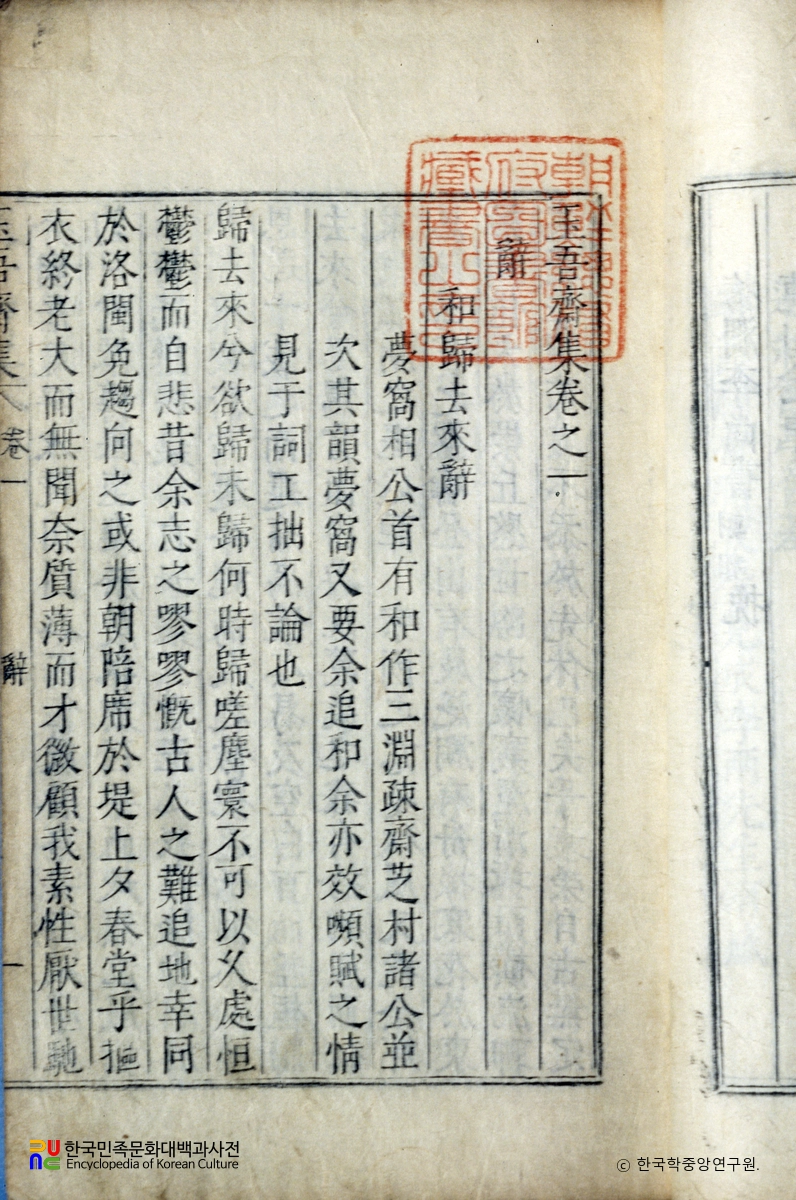 玉吾齋集卷之一
辭
和歸去來辭
夢窩相公首有和作三淵疎齋芝村諸公並
次其韻夢窩又要余追和余亦效嚬賦之情
見于詞工拙不論也
歸去來兮欲歸未歸何時歸嗟塵寰不可以久處恒
鬱鬱而自悲昔余志之嘐嘐慨古人之難追地幸同
於洛閩免趨向之或非朝陪席於堤上夕春堂乎摳
衣終老大而無聞奈質薄而才微顧我素性厭世馳
玉吾齋集 卷一 辭 一
한국민족문화대백과사전
Encyclopedia of Korean Culture
ⓒ 한국학중앙연구원.